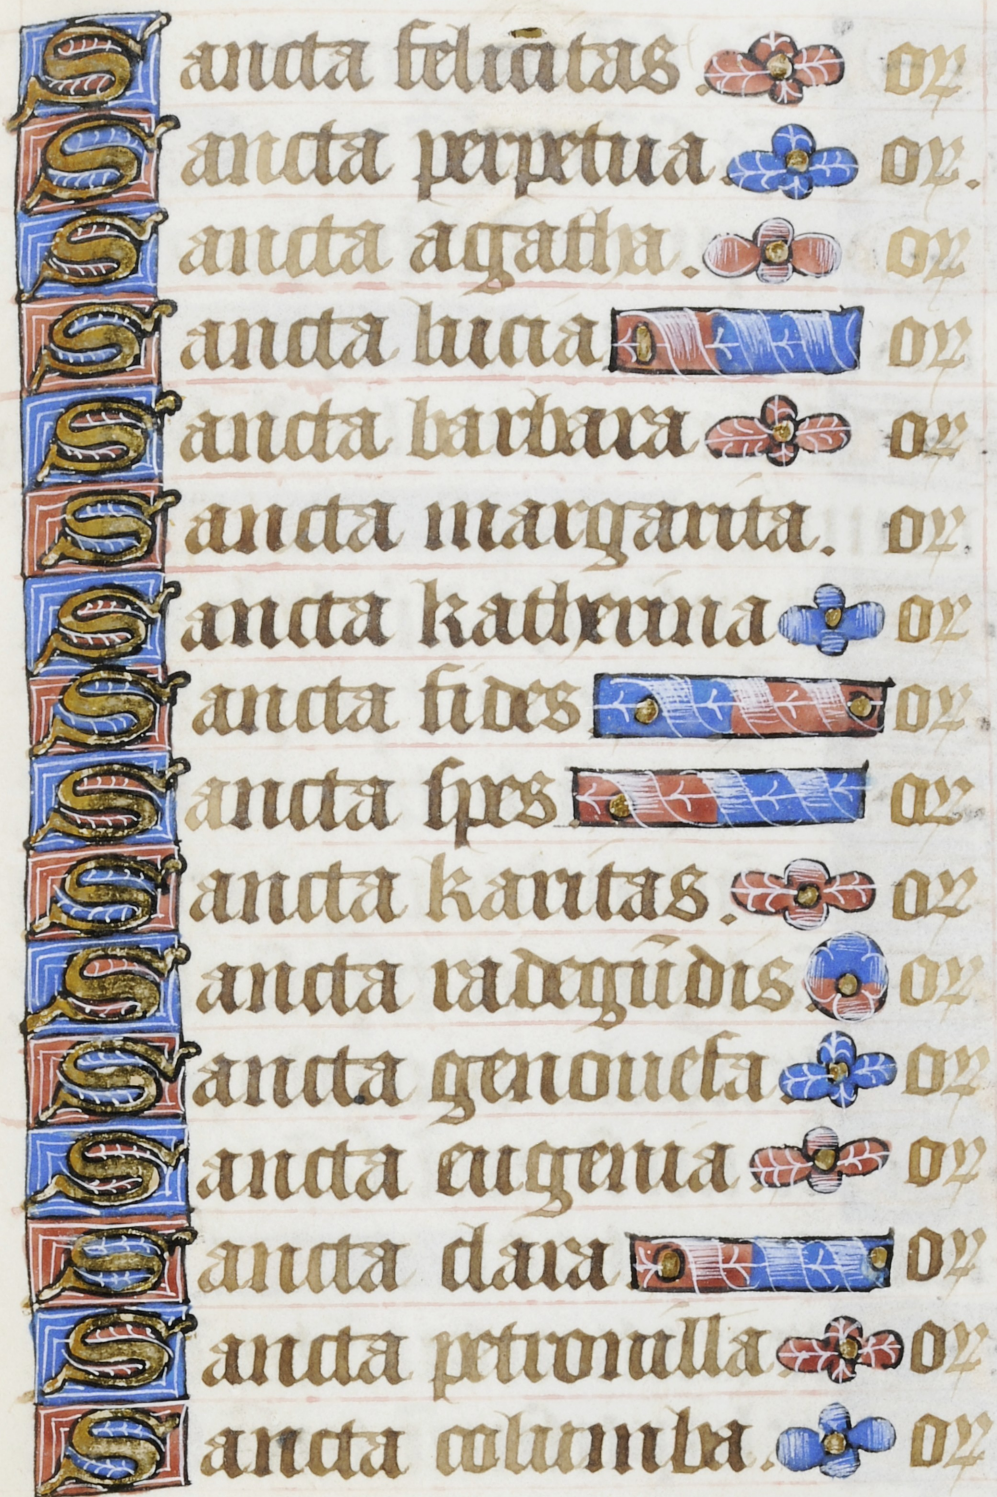 Sancta felicitas. or
Sancta perpetua. or.
Sancta agatha. or
Sancta lucia. or
Sancta barbara or
Sancta margarita. or.
Sancta katherina or
Sancta fides or
Sancta spes or
Sancta karitas. or
Sancta radegūdis or
Sancta genouefa or
Sancta eugenia. or
Sancta clara or
Sancta petronilla or
Sancta columba. or